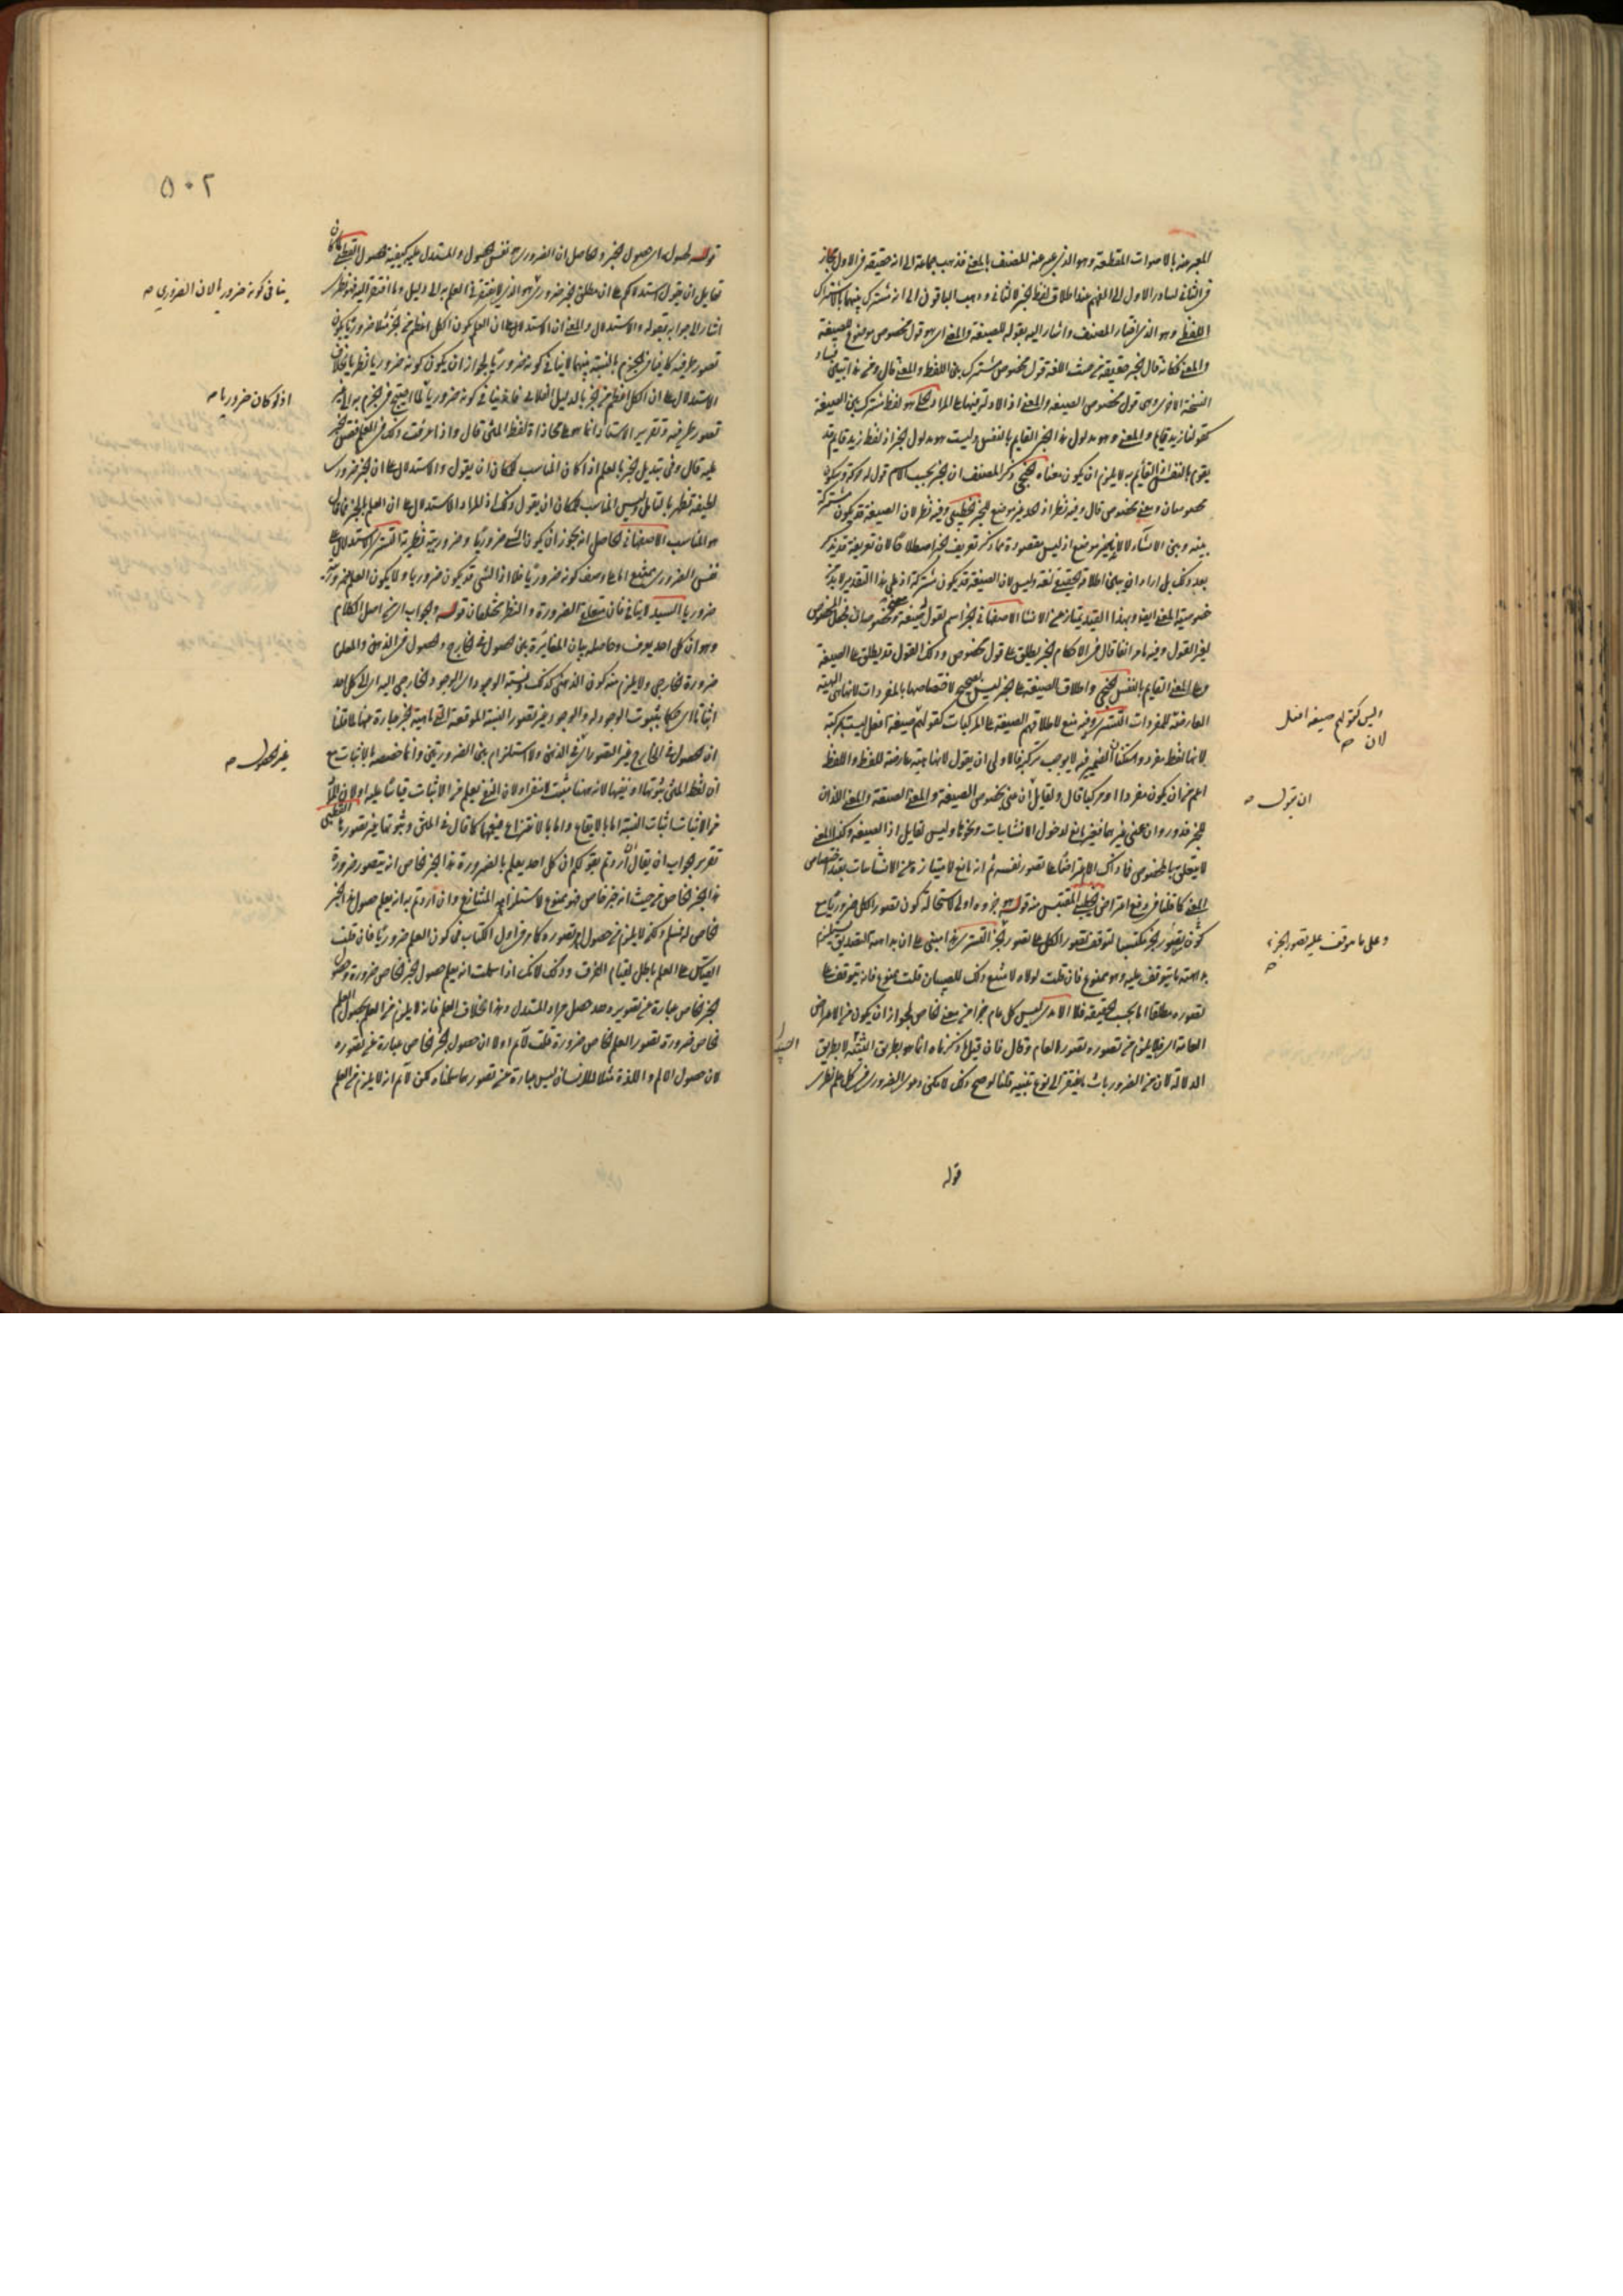 المعبر عنه بالاصوات المقطعة وهو الذي عبر عنه المصنف بالمعنى فذهب جماعة الى انه حقيقة في الاول مجاز
في الثاني لتبادر الاول الى الفهم عند اطلاق لفظ الخبر لا الثاني وذهب الباقون الى انه مشترك بينهما بالاشتراك
اللفظي وهو الذي اختاره المصنف واشار اليه بقوله للصيغة والمعنى اي هو قول مخصوص موضوع للصيغة
والمعنى فكانه قال الخبر حقيقة من حيث اللغة قول مخصوص مشترك بين اللفظ والمعنى قال ومن هذا تبين فساد
النسخة الاخرى وهي قول مخصوص الصيغة والمعنى اذ الاولى منهما على المراد هو لفظ مشترك بين الصيغة
كقولنا زيد قام والمعنى وهو مدلول هذا الخبر القايم بالنفس وليست هو مدلول الخبر اذ لفظ زيد قايم قد
يقوم بالنفس والقايم به لا يلزم ان يكون معناه الخنجي ذكر المصنف ان الخبر بحسب الاسم قول له
مخصوصان ومعنى مخصوص قال وفيه نظر
بينه وبين الانشاء لا لانه لخبر موضع اذ ليس مقصوده مما ذكر تعريف الخبر اصطلاحا لان تعريفه قد يذكر
بعد ذلك بل اراد ان يبين اطلاقه الحقيقي لغة وليس لان الصيغة قد يكون مشتركة اذ على هذا التقدير لا بد من
خصوصية المعنى ايضا وبهذا القيد يمتاز عن الانشا الاصفهاني الخبر اسم لقول
لغير القول وفيه ما مر انفا قال في الاحكام الخبر يطلق على قول مخصوص وذلك القول قد يطلق على الصيغة
وعلى المعنى القايم بالنفس الخنجي واطلاق الصيغة على الخبر ليس بصحيح لاختصاصها بالمفردات لانها هي الهيئة
العارضة للمفردات التستري وفيه منع لاطلاقهم الصيغة على المركبات كقولهم صيغة افعل ليست مركبة
لانها لفظ مفرد واستكنان الضمير فيه لا يوجب تركيبه فالاولى ان يقول لانها هيئة عارضة للفظ واللفظ
اعم من ان يكون مفردا او مركبا قال ولقايل ان عنى بخصوص الصيغة والمعنى الصيغة والمعنى اللذان
للخبر فدور وان عنى غيرهما فغير مانع لدخول الانشاءات ونحوها وليس لقايل اذ الصيغة وكذا المعنى
لا يتعلق بها الخصوص
المعنى كما قلنا في دفع اعتراض الخطيبي المقتبس منه قوله جزؤه اولى لاستحالة كون تصور الكل ضروريا مع
كون تصور الجزء مكتسبا لتوقف تصور الكل على تصور الجزء التستري هذا مبني على ان بداهة التصديق يستلزم
بداهة ما يتوقف عليه وهو ممنوع فان قلت لولاه لامتنع ذلك للصبيان قلت ممنوع فانه يتوقف على
تصوره مطلقا اما بحسب الحقيقة فلا الامدي ليس كل عام جزءا من معنى الخاص لجواز ان يكون من الاعراض
العامة اي فلا يلزم من تصوره تصور العام وقال فان قيل ما ذكرتماه انما هو بطريق التنبيه لا بطريق
الدلالة لان من الضروريات ما يفتقر الى نوع تنبيه قلنا لو صح ذلك لامكن دعوى الضروري في كل علم نظري
قوله
وليس كقولهم صيغة افعل
لان صح
ان يقول صح
وعلى ما توقف عليه تصور الجزء
صح
٥٠٢
قوله لحصول اي حصول الخبر والحاصل ان الضروري نفس الحصول والمستدل عليه كيفية حصول القطبي كان
لقايل ان يقول استدلالكم على ان مطلق الخبر ضروري هو الذي لا يفتقر في العلم به الى دليل وما افتقر اليه فهو نظري
اشار الى جوابه بقوله والاستدلال والمعنى ان الاستدلال على ان العلم بكون الكل اعظم من الجزء مثلا ضروريا بكون
تصور طرفيه كافيا في الجزم بالنسبة بينهما لا ينافي كونه ضروريا لجواز ان يكون كونه ضروريا نظريا بخلاف
الاستدلال على ان الكل اعظم من الجزء بالدليل العقلي فانه ينافي كونه ضروريا لما يحتاج في الجزم به الى غير
تصور طرفيه وتقرير الاستاذ انما هو على محاذاة لفظ المتن قال واذا عرفت ذلك في العلم فقس الخبر
عليه قال وفي تبديل الخبر بالعلم اذ كان المناسب للمكان ان يقول والاستدلال على ان الخبر ضروري
لطيفة تظهر بالتامل وليس المناسب للمكان ان يقول ذلك اذ المراد الاستدلال على ان العلم بالخبر
هو المناسب الاصفهاني الحاصل انه يجوز ان يكون الشي ضروريا وضروريته نظرية التستري الاستدلال على
نفس الضروري ممتنع اما على وصف كونه ضروريا فلا اذ الشي قد يكون ضروريا ولا يكون العلم بضروريته
ضروريا السيد لا ينافي فان متعلق الضرورة والنظر مختلفان قوله والجواب اي عن اصل الكلام
وهو ان كل احد يعرف وحاصله بيان المغايرة بين حصول في الخارج وحصول في الذهن والمعلوم
ضرورة الخارجي ولا يلزم منه كون الذهني كذلك ونسبة الوجود اي الوجود الخارجي اليه اي الى كل احد
اثباتا اي حكما بثبوت الوجود له والوجود غير تصور النسبة الموقعة التي ماهية الخبر عبارة عنها لما قلنا
ان الحصول في الخارج غير التصور اي في الذهن ولا استلزام بين الضرورتين وانما خصصه بالاثبات مع
ان لفظ المتن ثبوتها او نفيها لانه ههنا مثبت لا منفي ولان النفي يعلم من الاثبات قياسا عليه
في الاثبات اثبات النسبة اما بالايقاع واما بالانتزاع فيعمها كما قال في المتن وثبوتها غير تصورها القطبي
تقرير الجواب ان يقال ان اردتم بقولكم ان كل احد يعلم بالضرورة هذا الخبر الخاص انه يتصور ضرورة
هذا الخبر الخاص من حيث انه خبر خاص فهو ممنوع لاستلزامه المتنازع وان اردتم به انه يعلم حصول الخبر
الخاص له فمسلم ولكن لا يلزم من حصول امر تصوره كما مر في اول الكتاب في كون العلم ضروريا فان قلت
القياس على العلم باطل لقيام الفرق وذلك لانك اذا سلمت انه يعلم حصول الخبر الخاص ضرورة وحصول
الخبر الخاص عبارة عن تصوره وحده حصل مراد المستدل وهذا بخلاف العلم فانه لا يلزم من العلم بحصول العلم
الخاص ضرورة تصور العلم الخاص ضرورة قلت لا نم اولا ان حصول الخبر الخاص عبارة عن تصوره
لان حصول الالم واللذة مثلا للانسان ليس عبارة عن تصورهما سلمناه لكن لا نم انه لا يلزم من العلم
ينافي كونه ضروريا لان الضروري صح
اذ لو كان ضروريا صح
غير الحصول صح